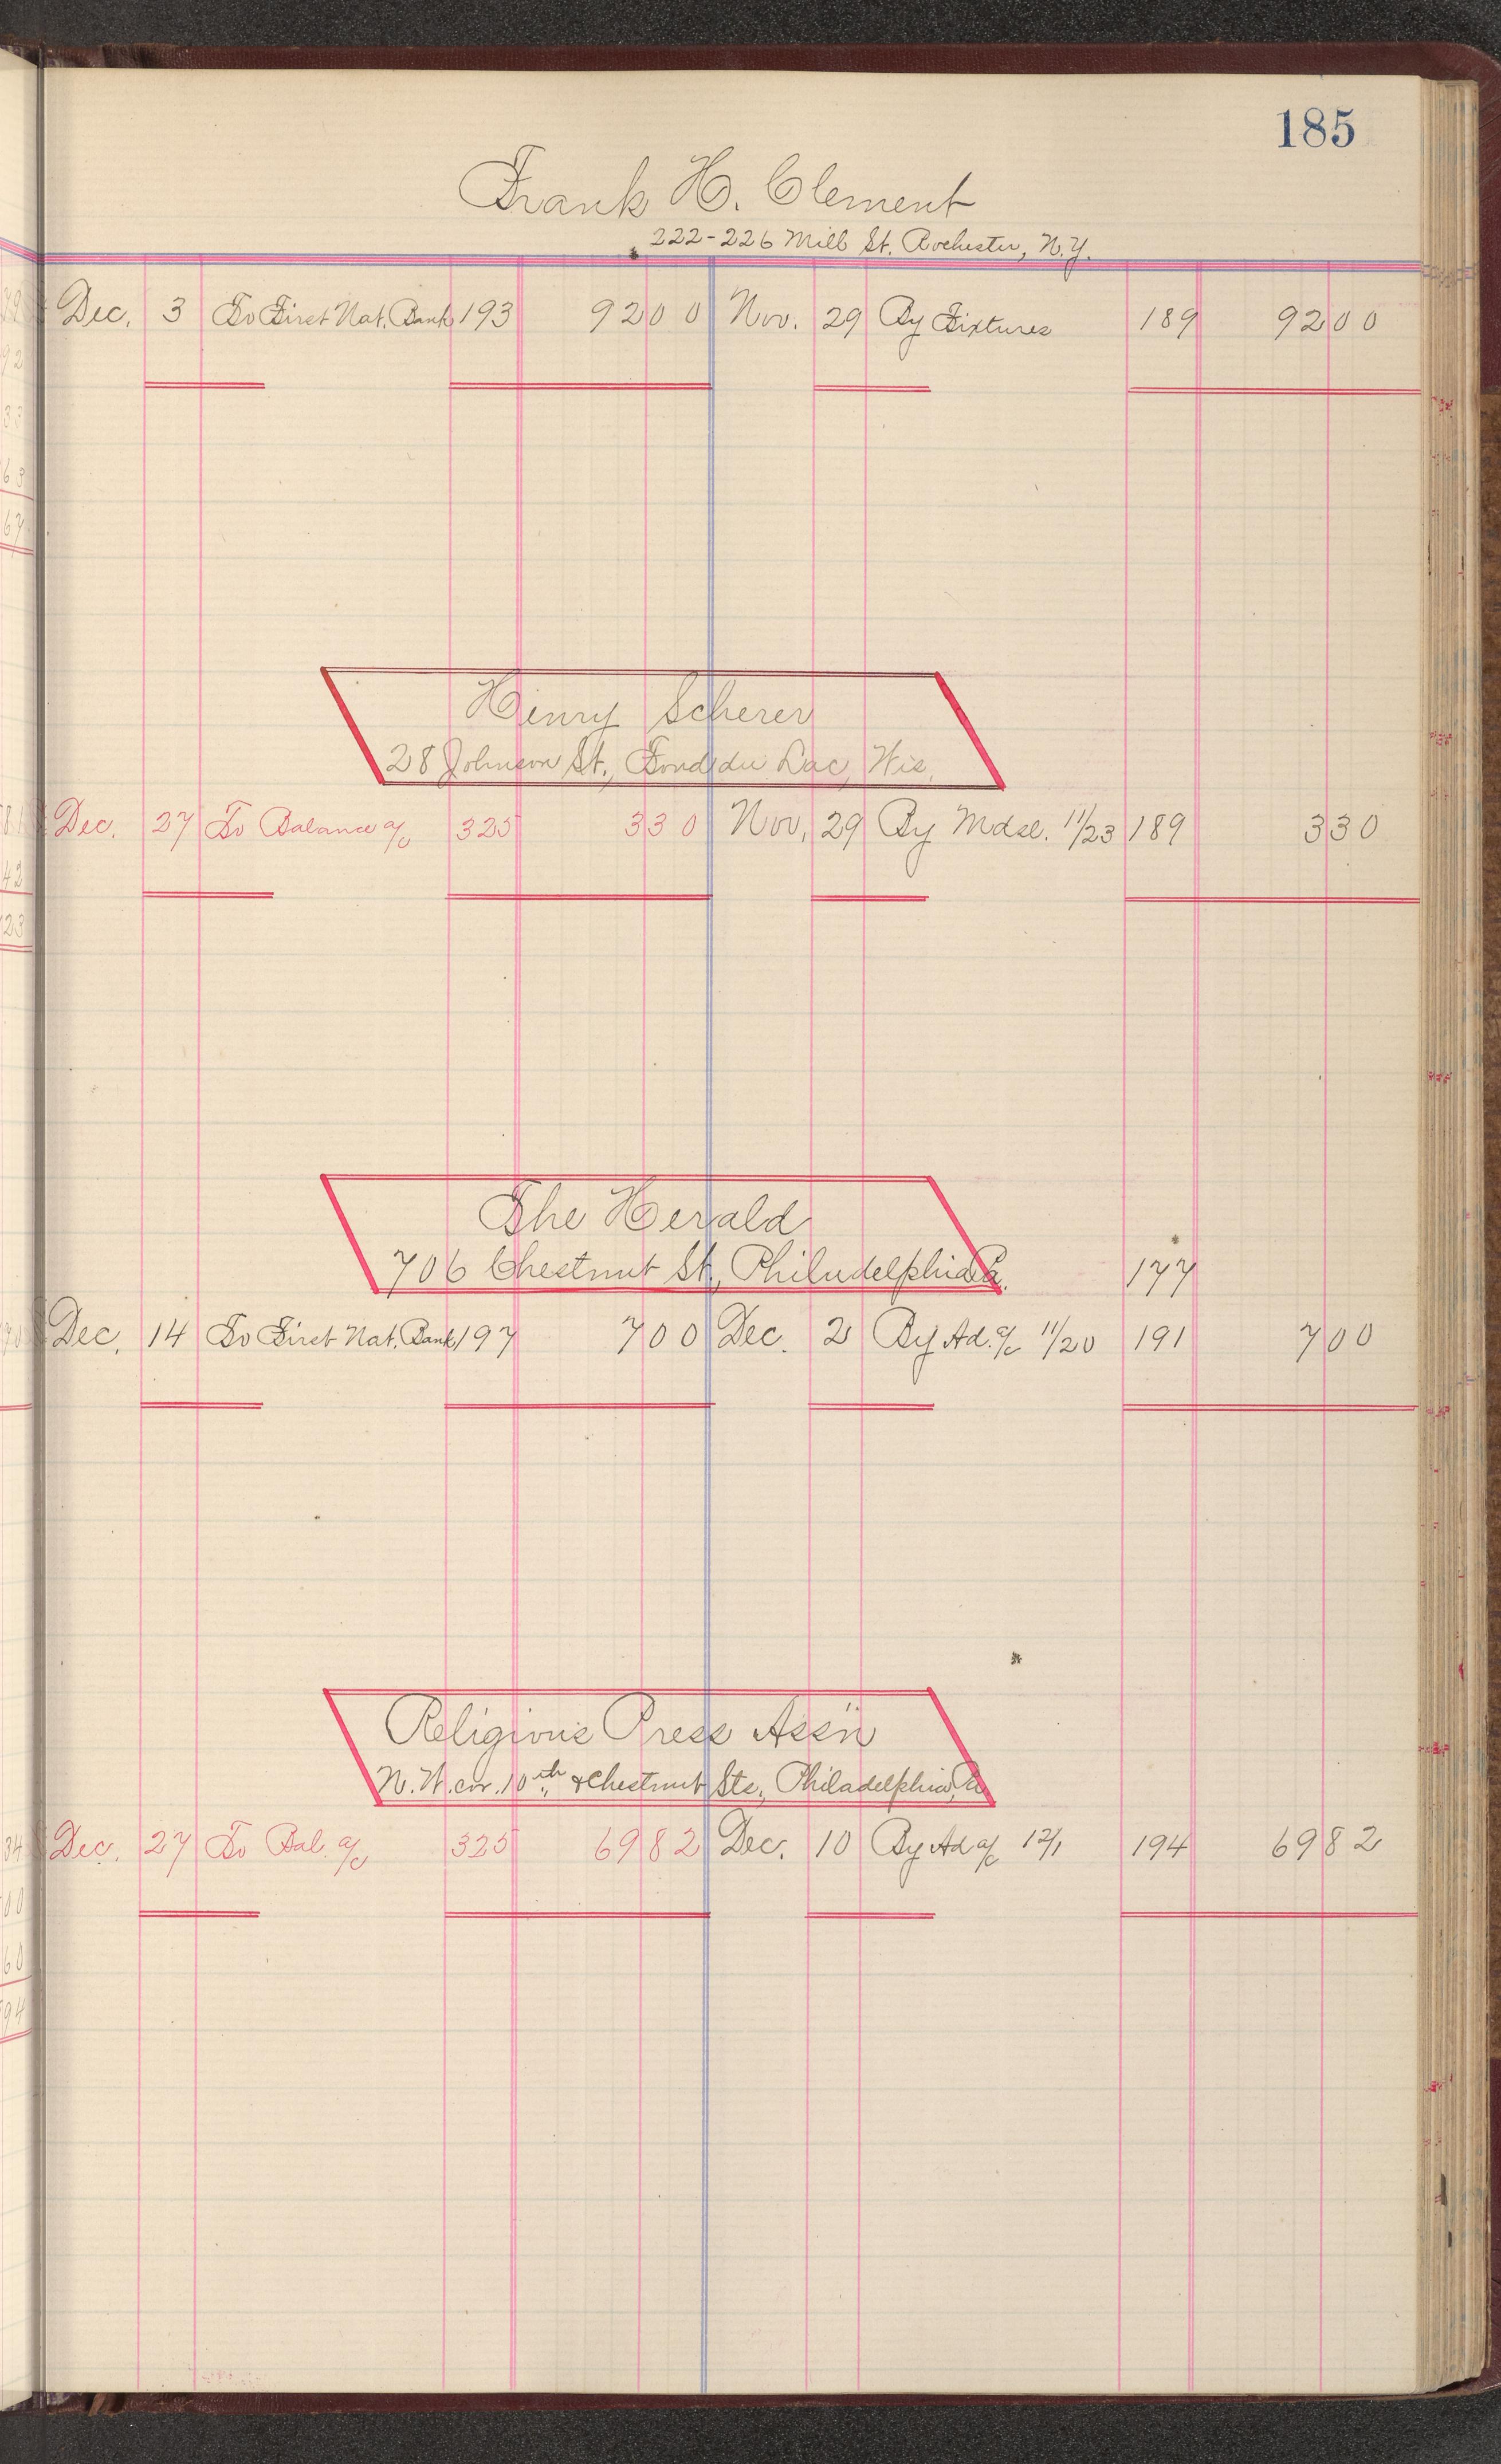 185
Frank H. Clement
222-226 Mill St. Rochester, N.Y.
Dec. 3 To First Nat. Bank 193 92 00 Nov. 29 By Fixtures 189 92 00
Henry Scherer
28 Johnson St., Fond du Lac, Wis.
Dec. 27 To Balance a/c 325 3 30 Nov. 29 By Mdse. 11/23 189 3 30
The Herald
706 Chestnut St., Philadelphia Pa. 177
Dec. 14 To First Nat. Bank 197 7 00 Dec. 2 By Ad. a/c 11/20 191 7 00
Religious Press Ass'n
N.W. cor. 10th & Chestnut Sts., Philadelphia, Pa
Dec. 27 To Bal. a/c 325 69 82 Dec. 10 By Ad a/c 12/1 194 69 82